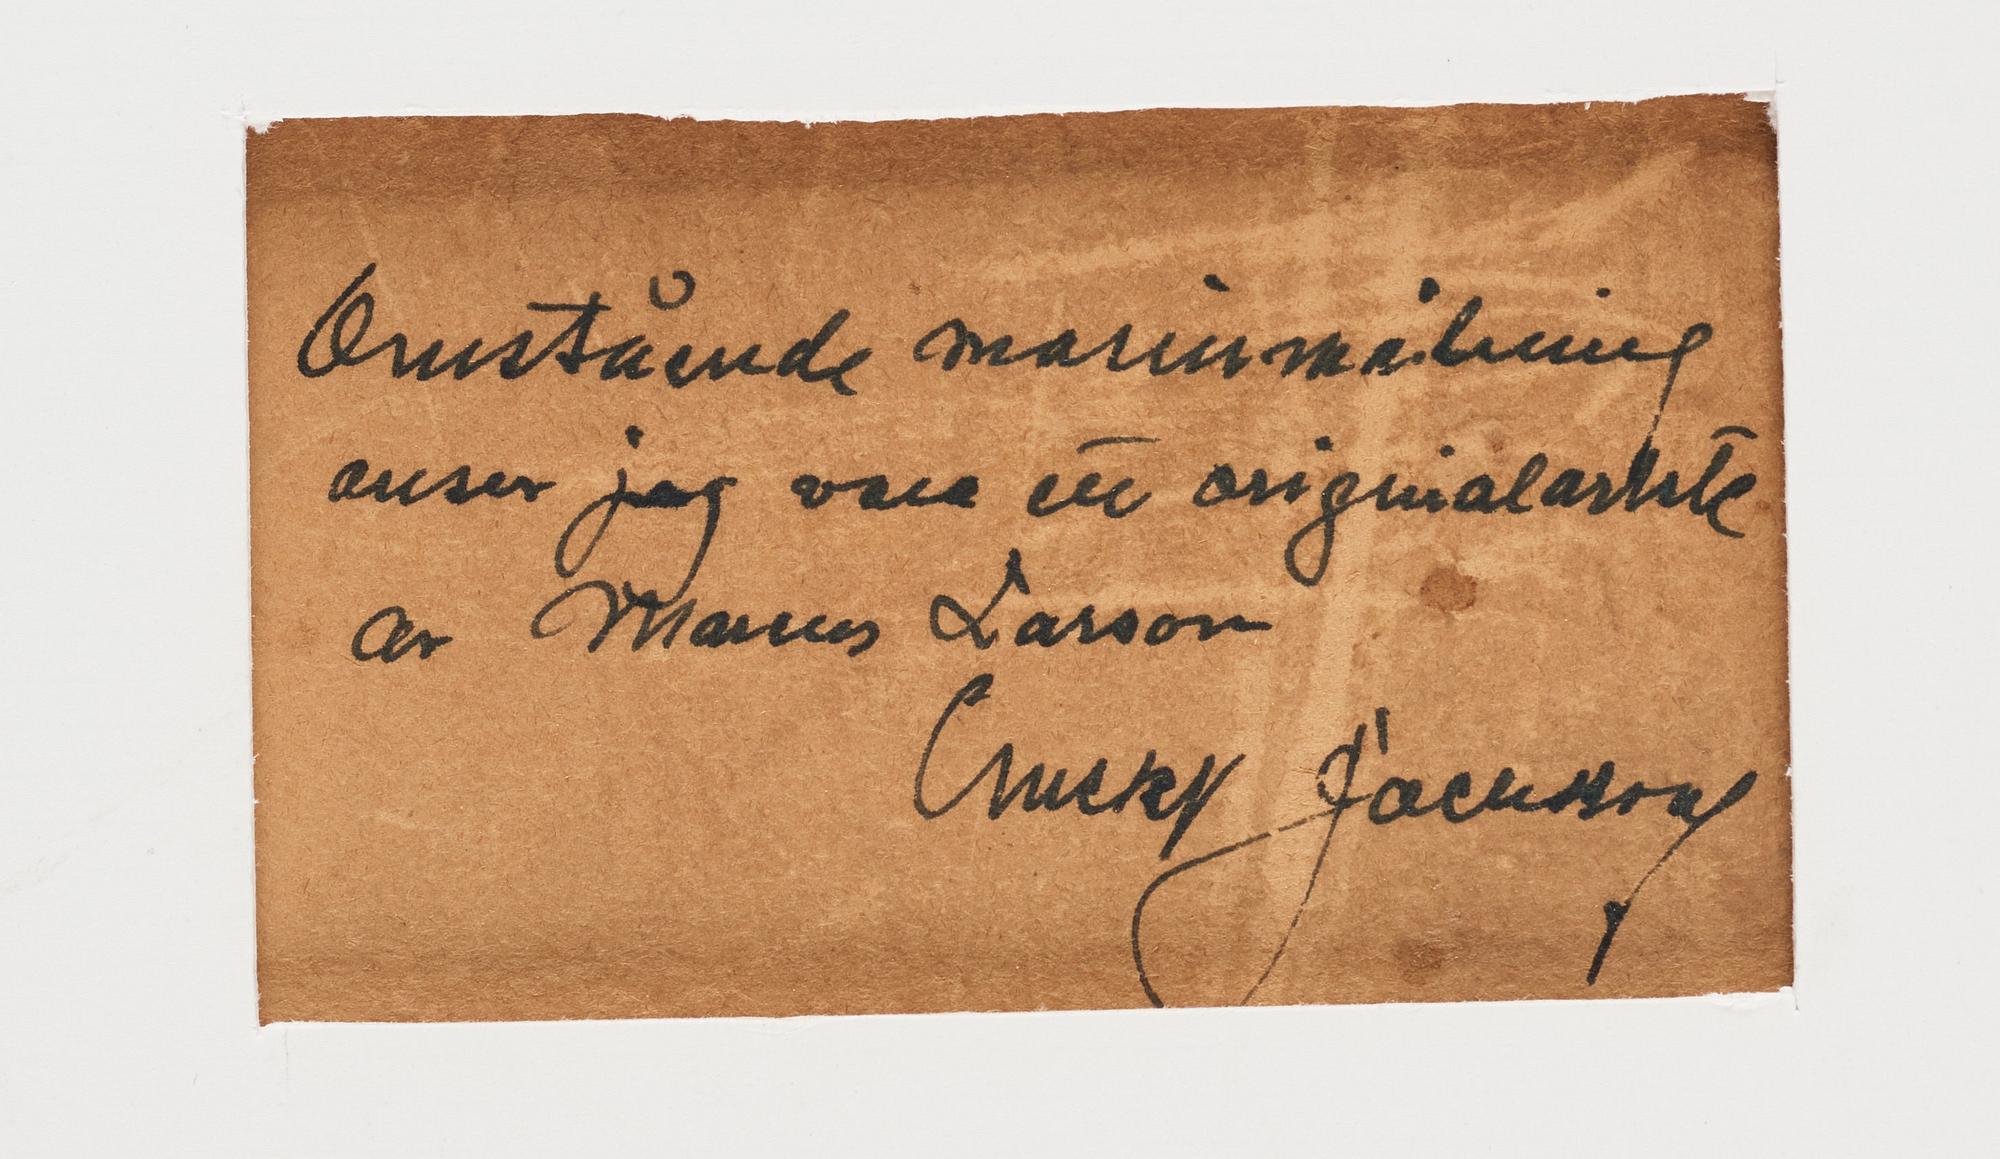 Omstående marinmålning
anser jag vara ett originalarbete
av Marcus Larson
Jackson